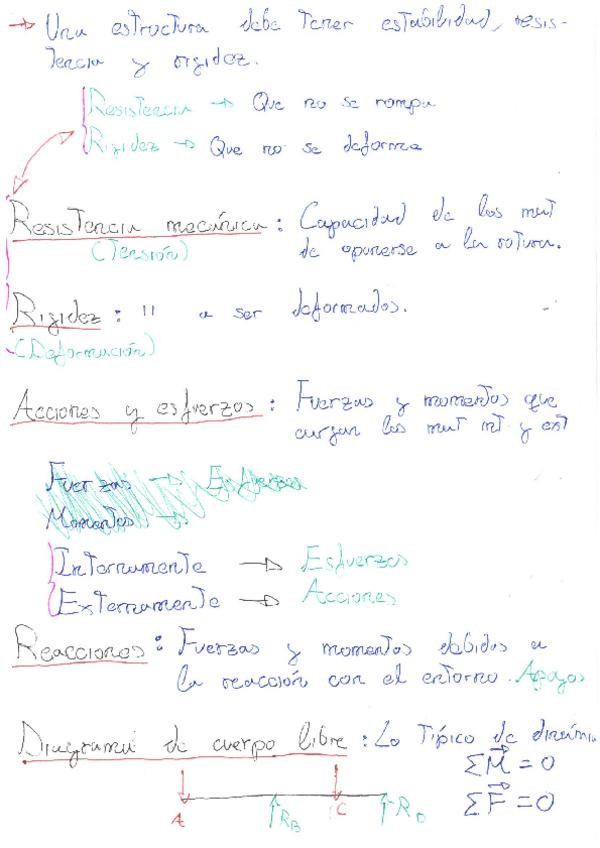 → Una estructura debe tener estabilidad, resis-
tencia y rigidez.
Resistencia → Que no se rompa
Rigidez → Que no se deforme
Resistencia mecánica : Capacidad de los mat
(Tensión) de oponerse a la rotura.
Rigidez : " a ser deformados.
(Deformación)
Acciones y esfuerzos : Fuerzas y momentos que
cargan los mat int y ext
Fuerzas → Esfuerzos
Momentos →
Internamente → Esfuerzos
Externamente → Acciones
Reacciones : Fuerzas y momentos debidos a
la reacción con el entorno. Apoyos
Diagrama de cuerpo libre : Lo típico de dinámi
ΣM⃗ = 0
ΣF⃗ = 0
A R_B C R_D